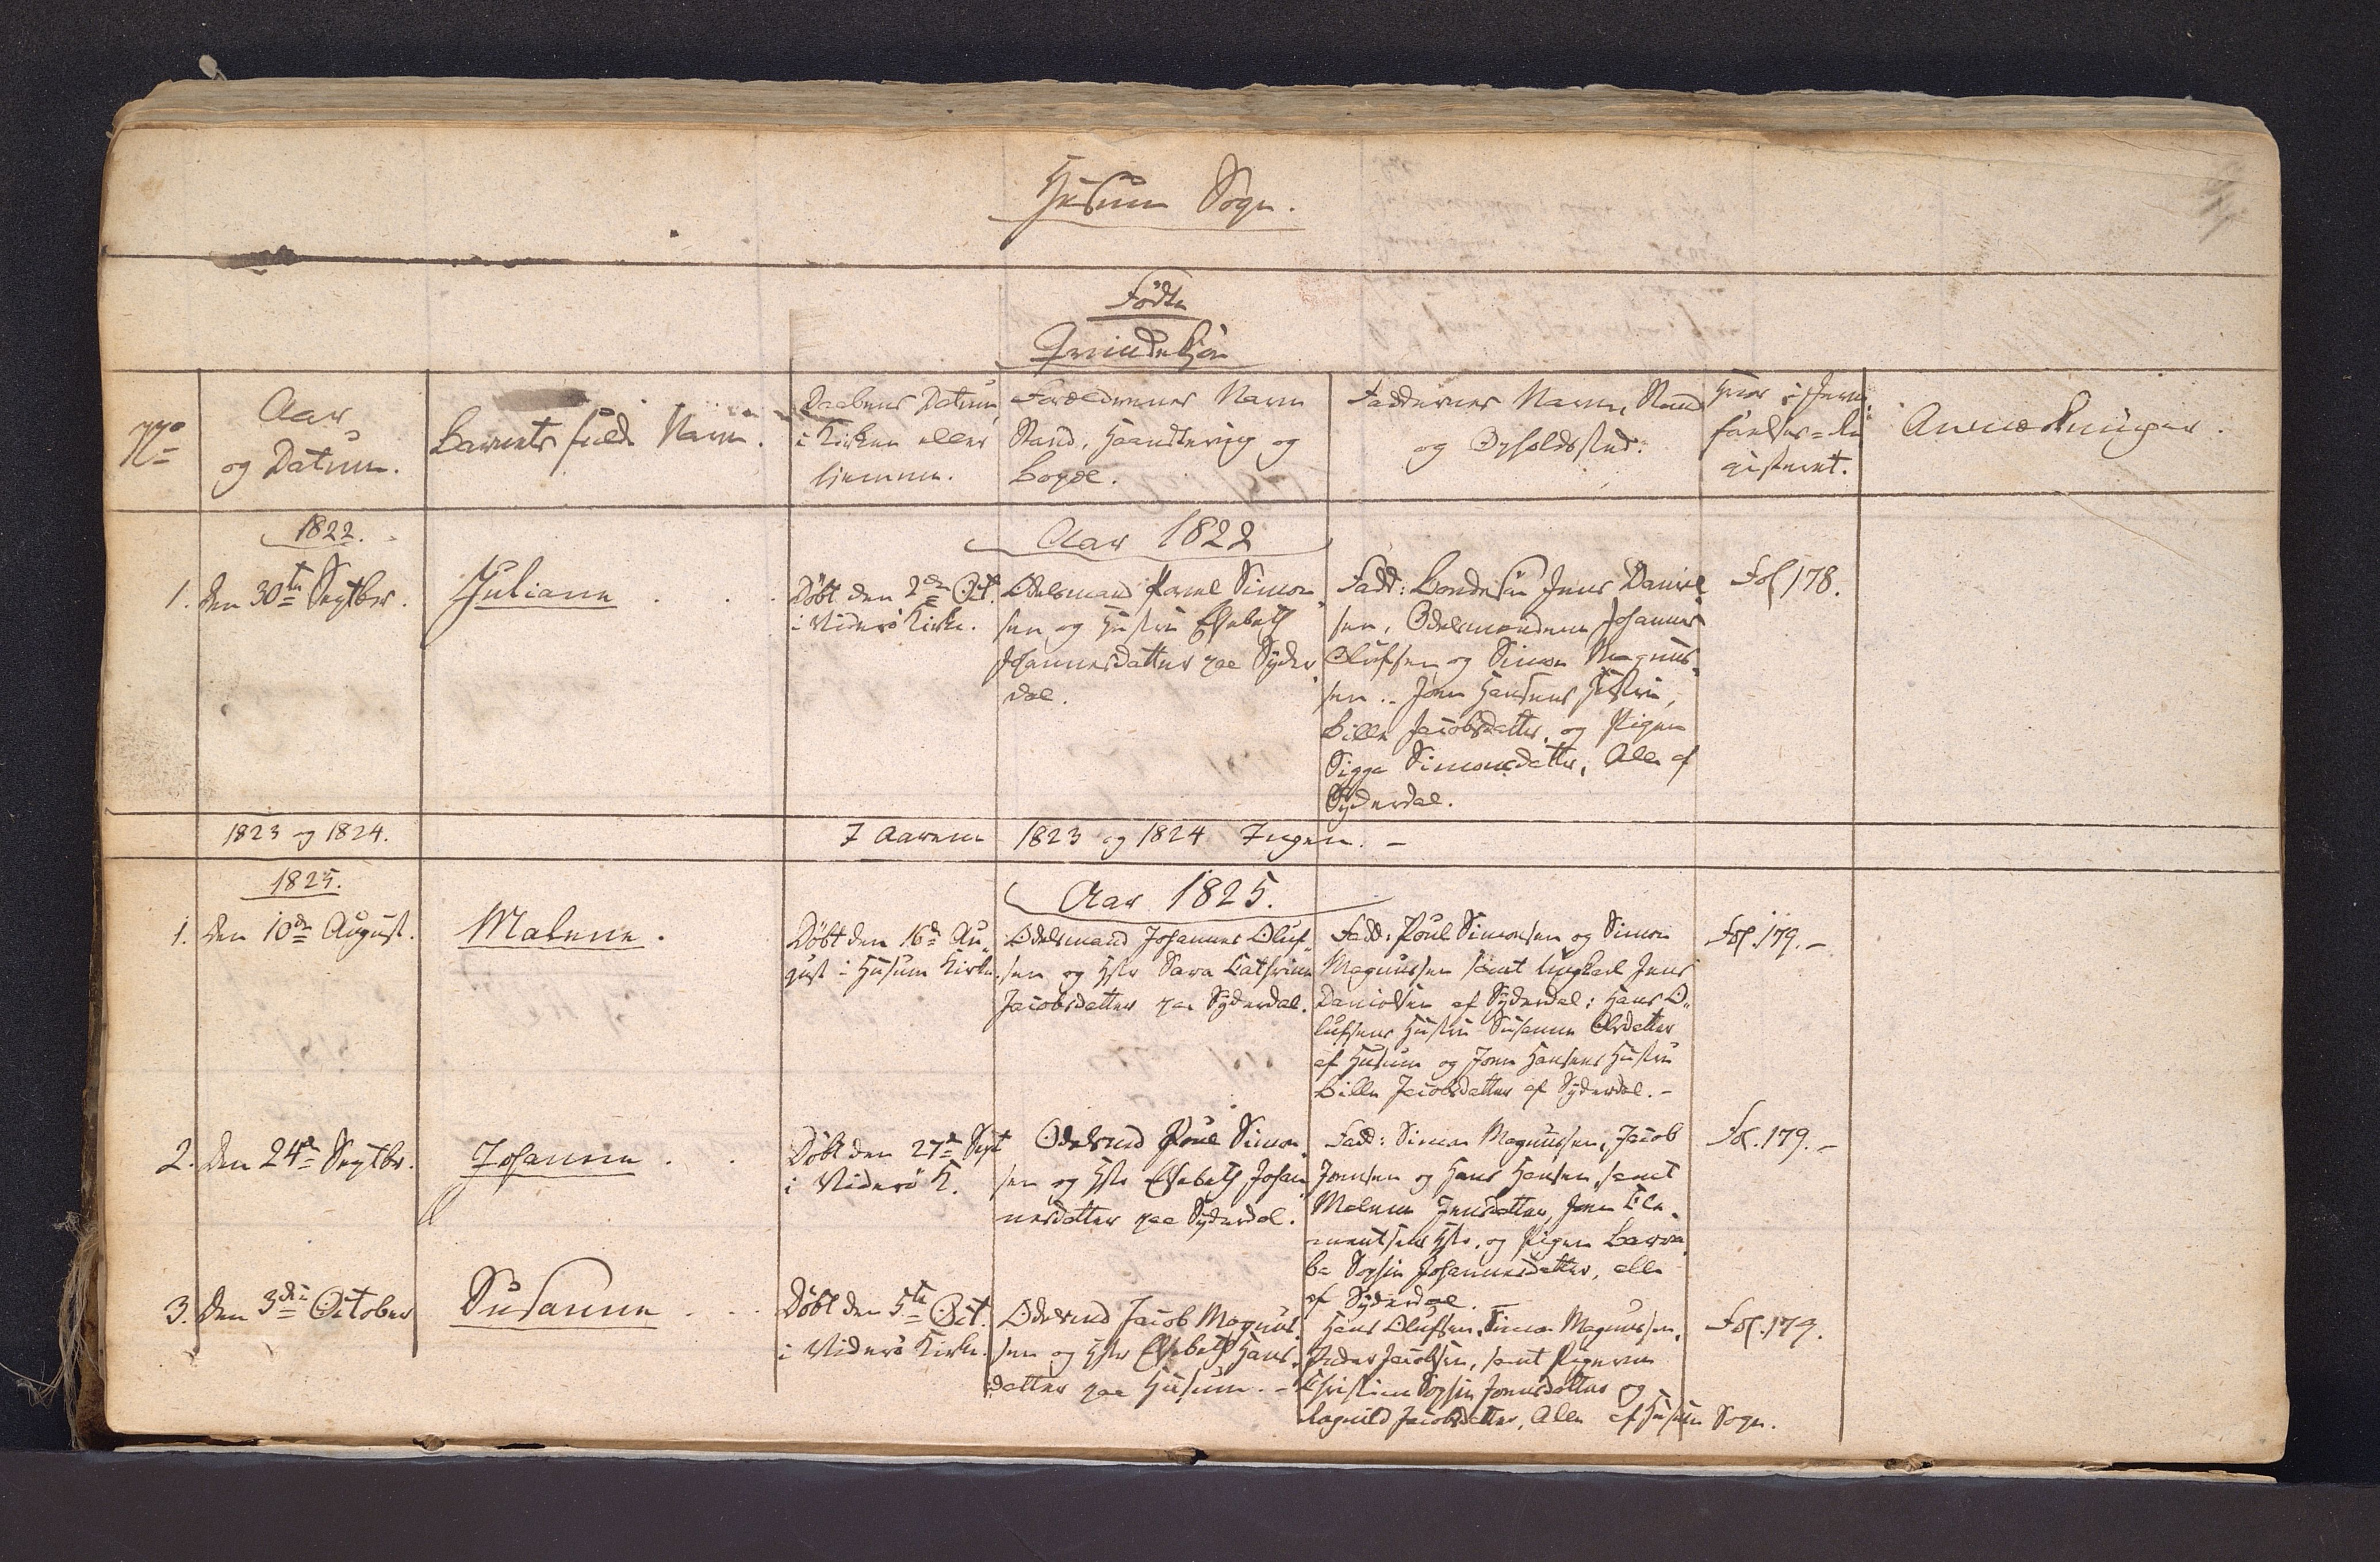 Husum Sogn.
Födte
Qvindekjön
No
Aar
og Datum.
Barnets fulde Navn.
Daabens Datum
i Kirken eller
hjemme.
Forældrenes Navn
Stand, Haandtering og
Bopæl.
Faddernes Navn, Stand
og Opholdssted.
Hvor i Jevn-
förelses-Re
gisteret.
Anmærkninger.
1822.
Aar 1822
1. Den 30te Septber.
Juliane . . .
Döbt den 2den Oct.
i Viderö Kirke.
Odelsmand Poul Simon-
sen og Hustru Elsebeth
Johannesdatter paa Syder-
dal.
Fadd: Bondesön Jens Daniel-
sen, Odelsmændene Johannes
Olufsen og Simon Magnus-
sen. Joen Hansens Hustru,
Bille Jacobsdatter, og Pigen
Sigga Simonsdatter, Alle af
Syderdal.
Fol 178.
1823 og 1824.
I Aarene 1823 og 1824 Ingen. -
1825.
Aar 1825.
1. Den 10de August.
Malene .
Döbt den 16de Au-
gust i Husum Kirke.
Odelsmand Johannes Oluf-
sen og Hstr Sara Cathrine
Jacobsdatter paa Syderdal.
Fadd: Poul Simonsen og Simon
Magnussen samt Ungkarl Jens
Danielsen af Syderdal; Hans O-
lufsens Hustru Susanne Olesdatter
af Husum og Joen Hansens Hustru
Bille Jacobsdatter af Syderdal. -
Fol. 179. -
2. Den 24de Septbr.
Johanne . .
Döbt den 27de Sept
i Viderö K.
Odelsmd Poul Simon-
sen og Hstr Elsebeth Johan-
nesdatter paa Syderdal.
Fadd: Simon Magnussen, Jacob
Joensen og Hans Hansen, samt
Malene Jensdatter, Joen Cle-
mentsens Hstr. og Pigen Barra-
ba Sophie Johannesdatter, alle
af Syderdal. -
Fol. 179. -
3. Den 3die October
Susanne . . .
Döbt den 5te Oct.
i Viderö Kirke.
Odelsmd Jacob Magnus-
sen og Hstr Elsebeth Hans-
datter paa Husum. -
Hans Olufsen, Simon Magnussen,
Peder Jacobsen, samt Pigerne
Christine Sophie Joensdatter og
Ragnild Jacobsdatter, Alle af Husum Sogn.
Fol. 179.